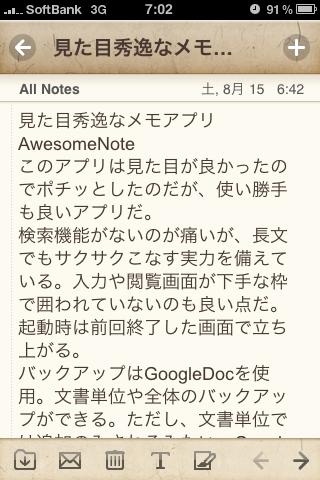 SoftBank 7:02 91 %
見た目秀逸なメモ...
All Notes 土, 8月 15 6:42
見た目秀逸なメモアプリ
AwesomeNote
このアプリは見た目が良かったの
でポチッとしたのだが、使い勝手
も良いアプリだ。
検索機能がないのが痛いが、長文
でもサクサクこなす実力を備えて
いる。入力や閲覧画面が下手な枠
で囲われていないのも良い点だ。
起動時は前回終了した画面で立ち
上がる。
バックアップはGoogleDocを使
用。文書単位や全体のバックアッ
プができる。ただし、文書単位で